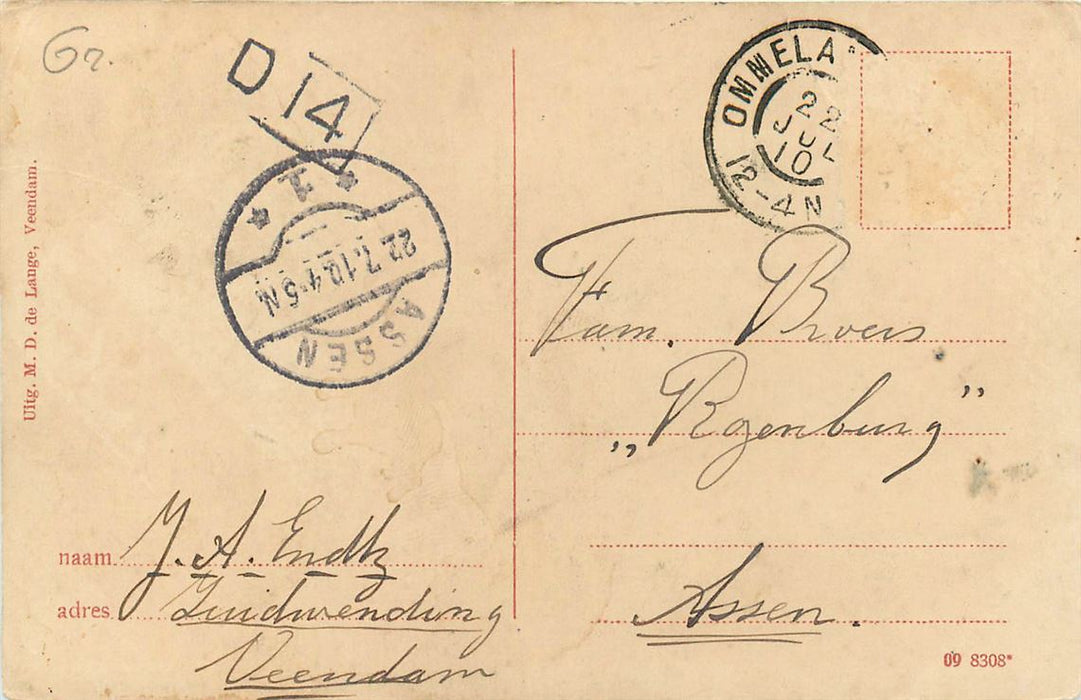 Gr.
D 14
OMMELA
22
JUL
10
12-4N
1
22.7.10.4-5N
ASSEN
Uitg. M. D. de Lange, Veendam.
Fam. Broers
„Rgenburg”
Assen.
naam J. A. Endtz
adres Zuidwending
Veendam
09 8308*